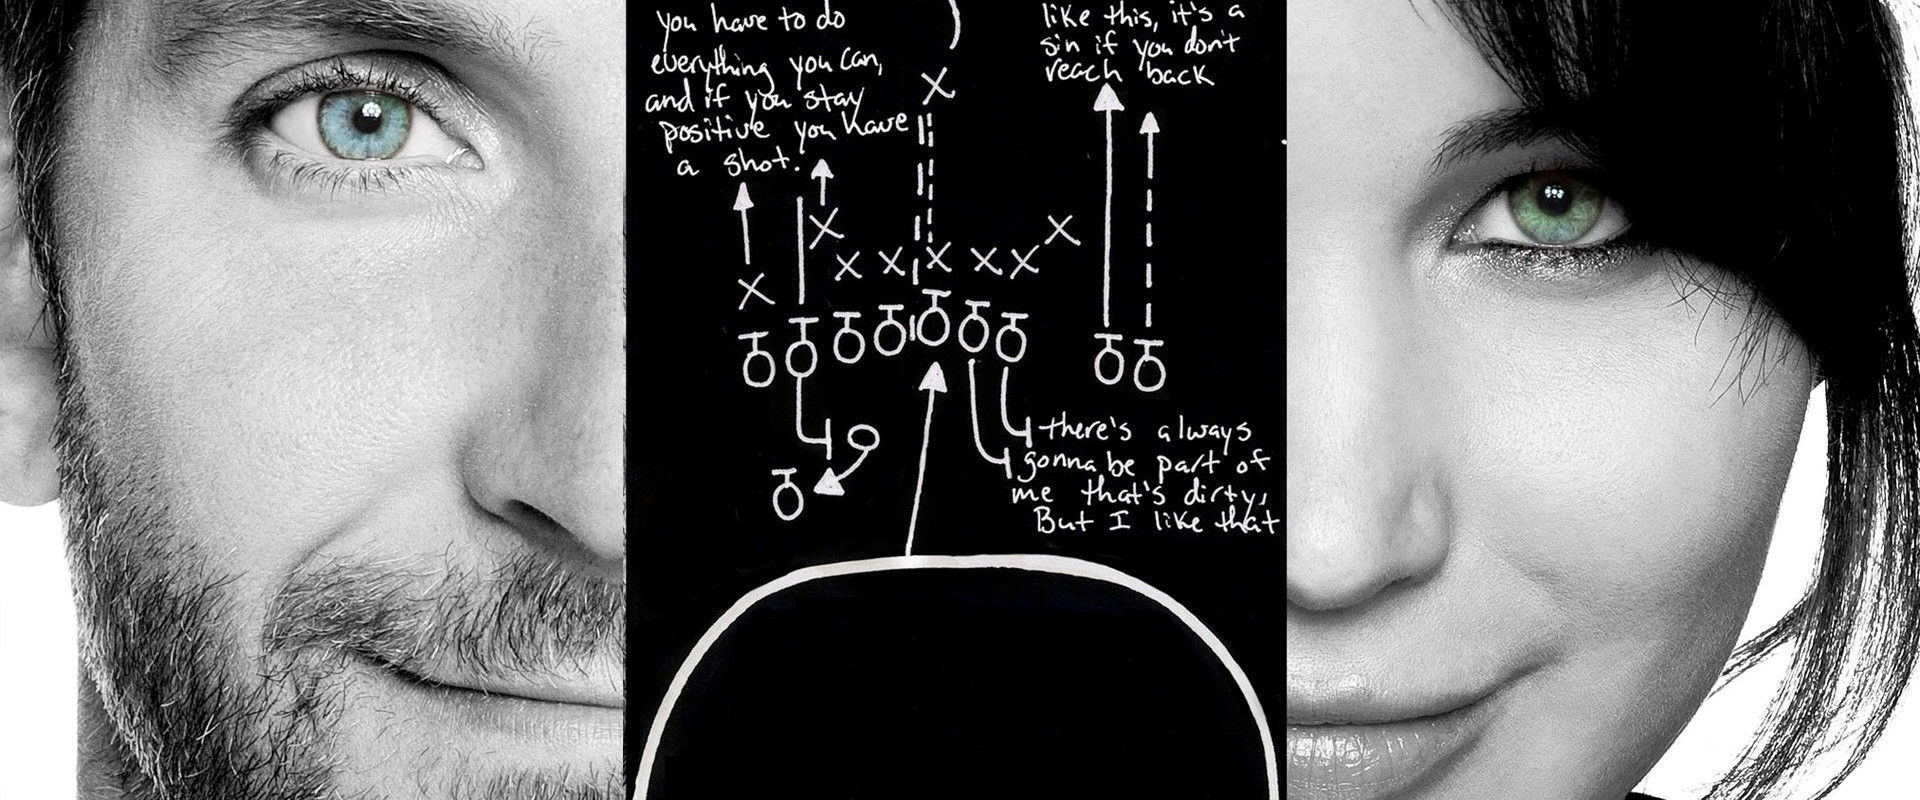 you have to do
everything you can,
and if you stay
positive you have
a shot.
like this, it's a
sin if you don't
reach back
there's always
gonna be part of
me that's dirty,
But I like that